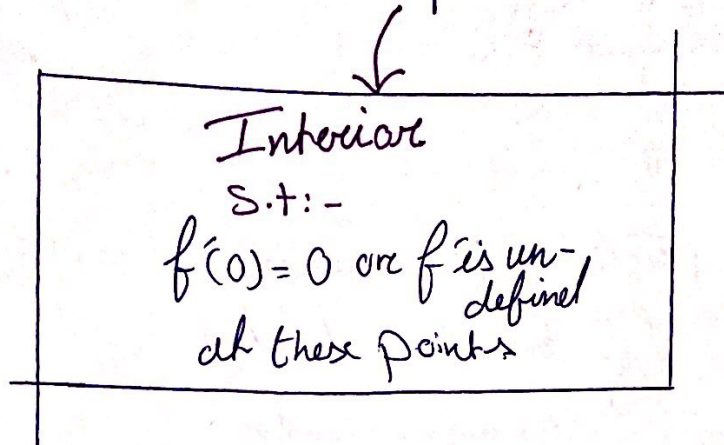 Interior
S.t:-
f'(0) = 0 or f' is un-
defined
at these points